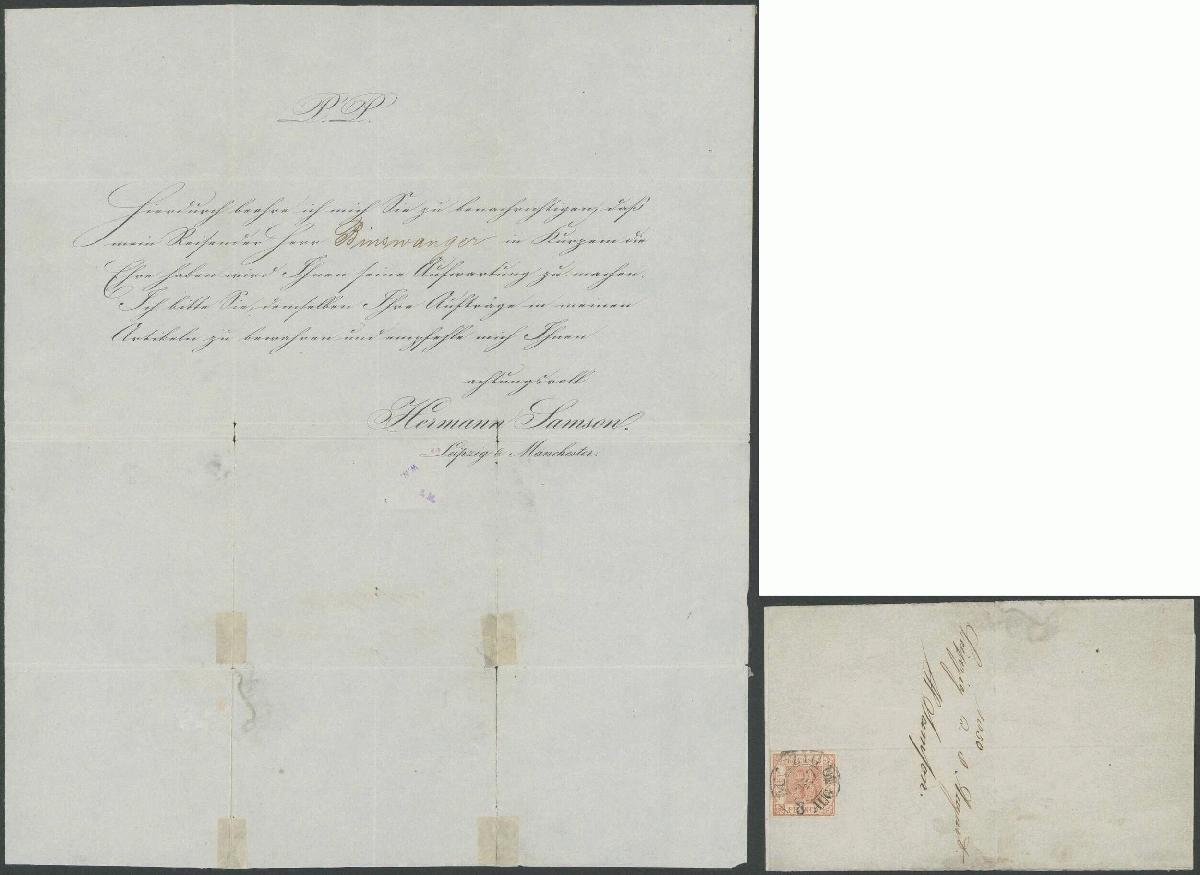 P. P.
Hierdurch beehre ich mich Sie zu benachrichtigen, daß
mein Reisender Herr Binswanger in Kurzem die
Ehre haben wird Ihnen seine Aufwartung zu machen.
Ich bitte Sie, demselben Ihre Aufträge in meinen
Artikeln zu bewahren und empfehle mich Ihnen
achtungsvoll
Hermann Samson.
Leipzig & Manchester.
1850
Leipzig 2 August
H Samson.
LEIPZIG
8 AUG